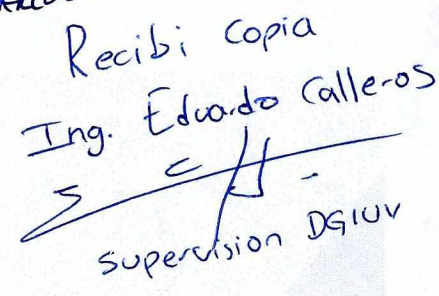 Recibi copia
Ing. Eduardo Calleros
supervision DGIUV